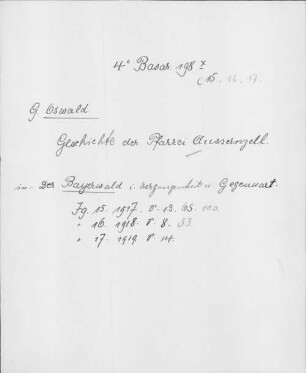 4° Bavar. 198 x
(15. 16. 17.
G. Oswald
Geschichte der Pfarrei Aussernzell.
in: Der Bayerwald i. Vergangenheit u. Gegenwart.
Jg. 15. 1917. S. 13. 65. 100.
" 16. 1918. S. 8. 53
" 17. 1919. S. 14.